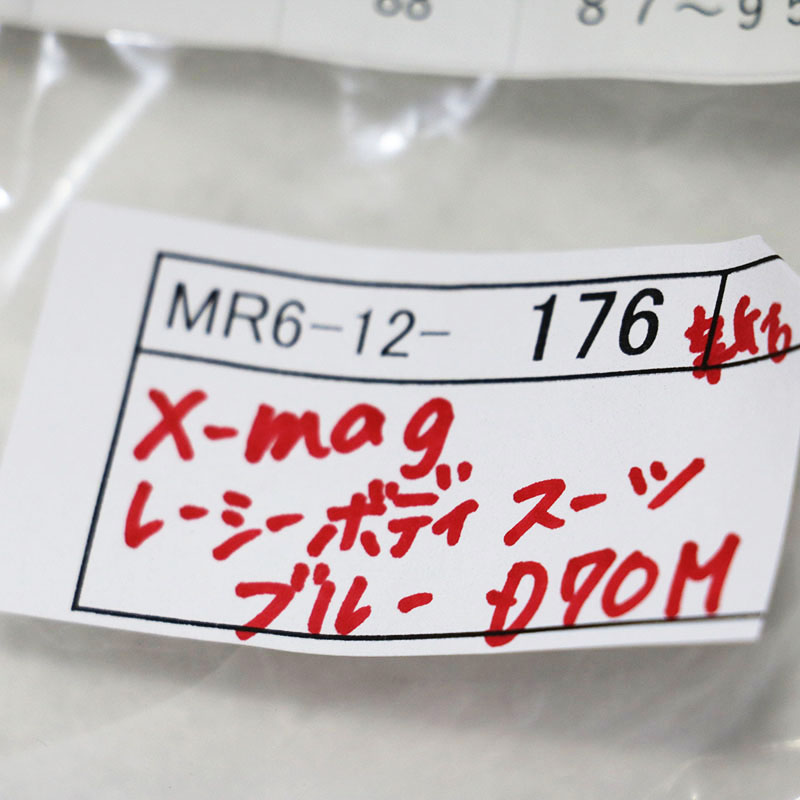 87～95
MR6-12- 176
X-mag
レーシーボディスーツ
ブルー D70M